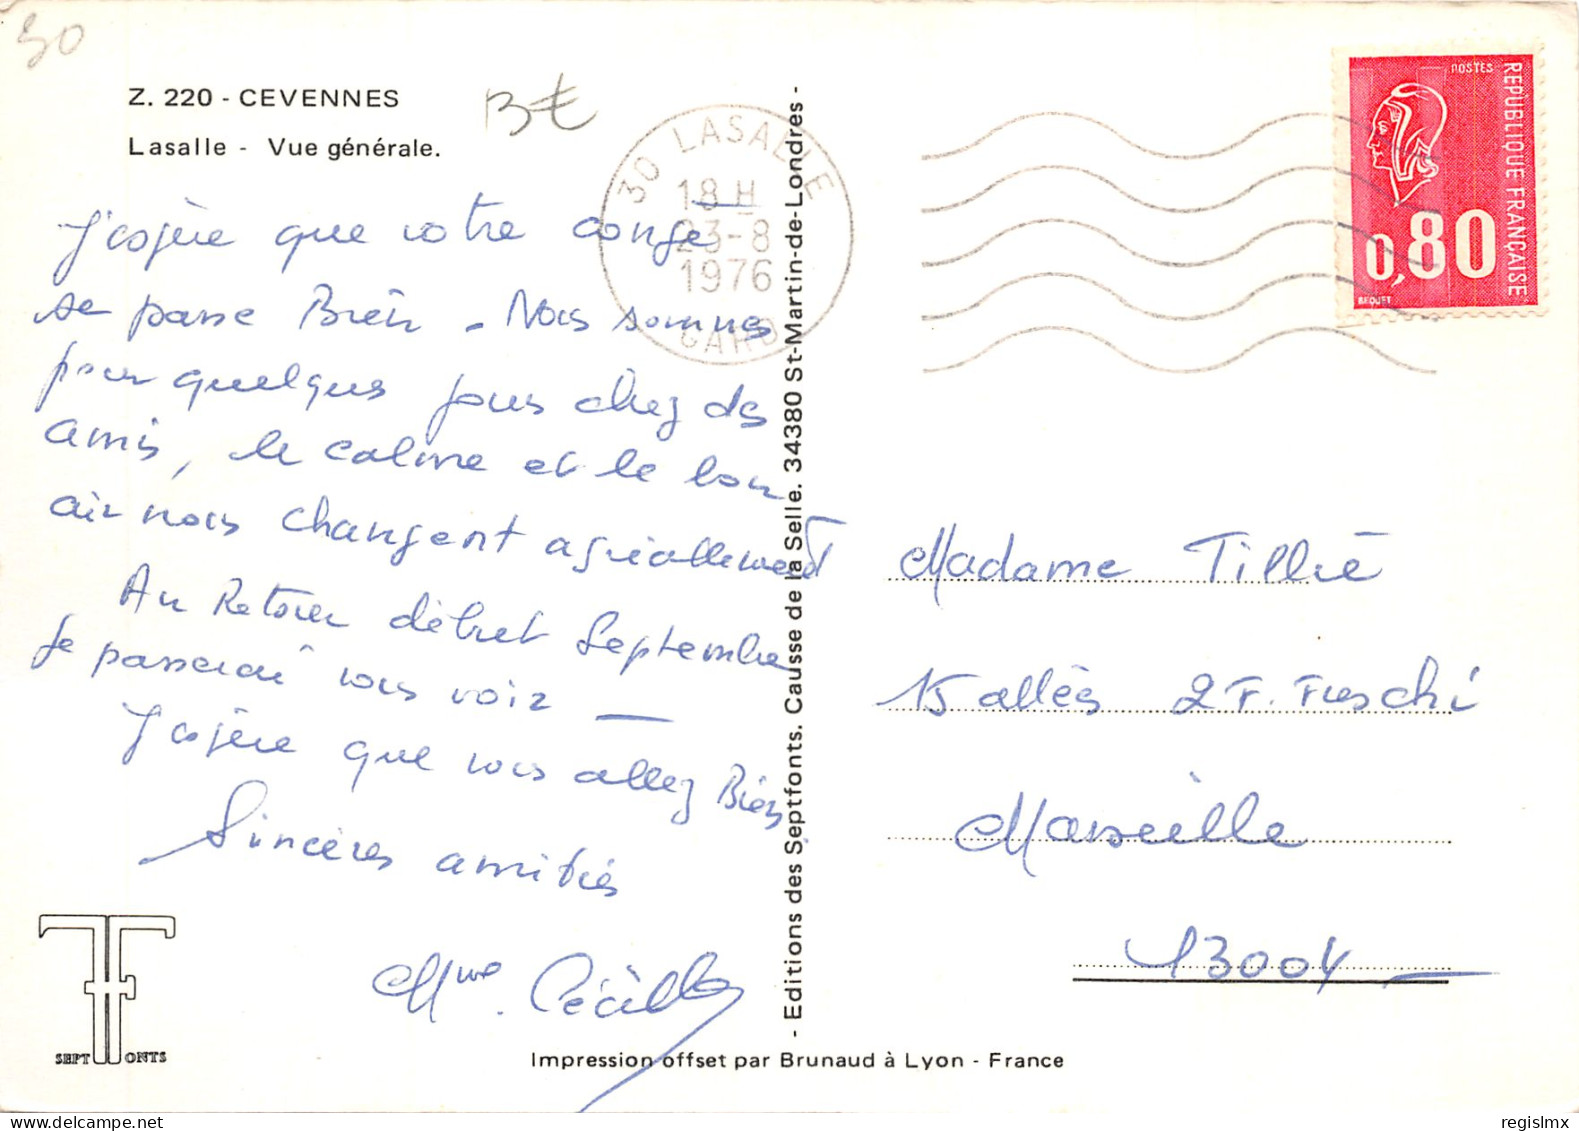 30
Z. 220 - CEVENNES
Lasalle - Vue générale.
3€
30 LASALLE
18 H
23-8
1976
GARD
POSTES
REPUBLIQUE FRANÇAISE
0,80
BEQUET
J'espère que votre conge
se passe Bien. Nous sommes
pour quelques jours chez des
amis, le calme et le bon
air nous changent agréablement
Au Retour début Septembre
je passerai vous voir —
J'espère que vous allez Bien
Sincères amitiés
Mme.
- Editions des Septfonts. Causse de la Selle. 34380 St-Martin-de-Londres -
Madame Tillié
15 allées
Marseille
13004
SEPT FONTS
Impression offset par Brunaud à Lyon - France
regislmx